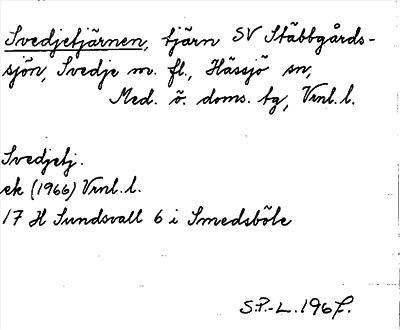 Svedjetjärnen, tjärn SV Stäbbgårds-
sjön, Svedje m. fl., Hässjö sn,
Med. ö. doms. tg, Vrnl. l.
Svedjetj.
ek (1966) Vrnl. l.
17 H Sundsvall 6 i Smedsböle
S.P.-L. 1967.